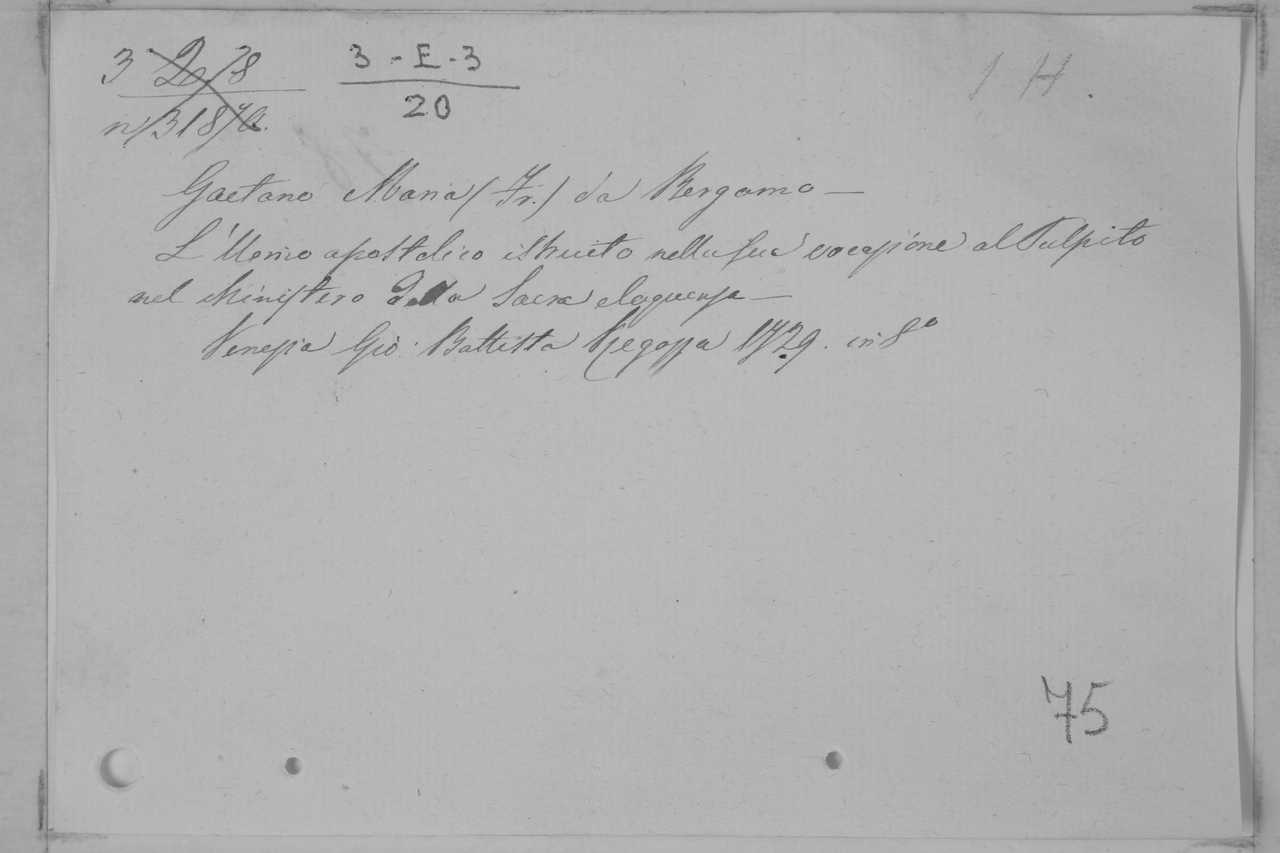 3 - E - 3
20
1 H.
Gaetano Maria (Fr.) da Bergamo —
L'Uomo apostolico istruito nella sua vocazione al Pulpito
nel Ministero della Sacra eloquenza —
Venezia Gio. Battista Regozza 1729. in 8°
75